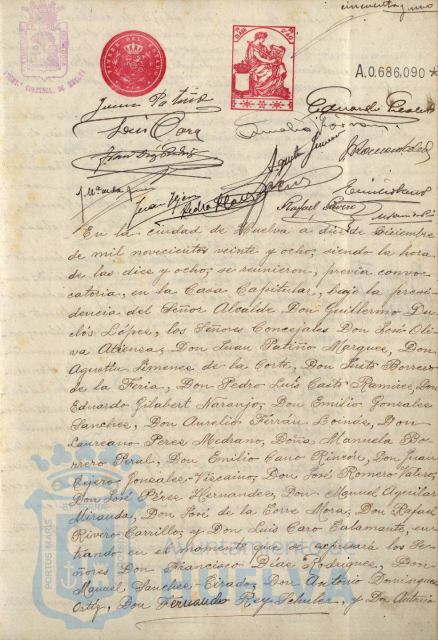 cincuenta y uno
A.0.686,090 *
Juan Patiño
Luis Caro
Pedro
Rafael Rivero
En la ciudad de Huelva a diez de Diciembre
de mil novecientos veinte y ocho, siendo la hora
de las diez y ocho, se reunieron, previa convo-
catoria, en la Casa Capitular, bajo la presi-
dencia del Señor Alcalde Don Guillermo Du-
clós López, los Señores Concejales Don José Oli-
va Atienza, Don Juan Patiño Marquez, Don
Agustín Jimenez de la Corte, Don Justo Borrero
de la Feria, Don Pedro Luis Casto Ramirez, Don
Eduardo Gilabert Naranjo, Don Emilio Gonzalez
Sanchez, Don Aurelio Ferrán Loinaz, Don
Laureano Perez Medrano, Doña Manuela Bo-
rrero Peral, Don Emilio Cano Rincón, Don Juan
Tejero Gonzalez-Vizcaino, Don José Romero Valero,
Don José Pérez Hernandez, Don Manuel Aguilar
Miranda, Don José de la Torre Mora, Don Rafael
Rivero Carrillo, y Don Luis Caro Calamante, en-
trando en el momento que se expresará los Se-
ñores Don Francisco Diaz Rodriguez, Don
Manuel Sanchez-Tirado, Don Antonio Dominguez
Ortiz, Don Fernando Rey Schuler, y Don Antonio
PORTUS MARIS
Ayuntamiento de
HUELVA